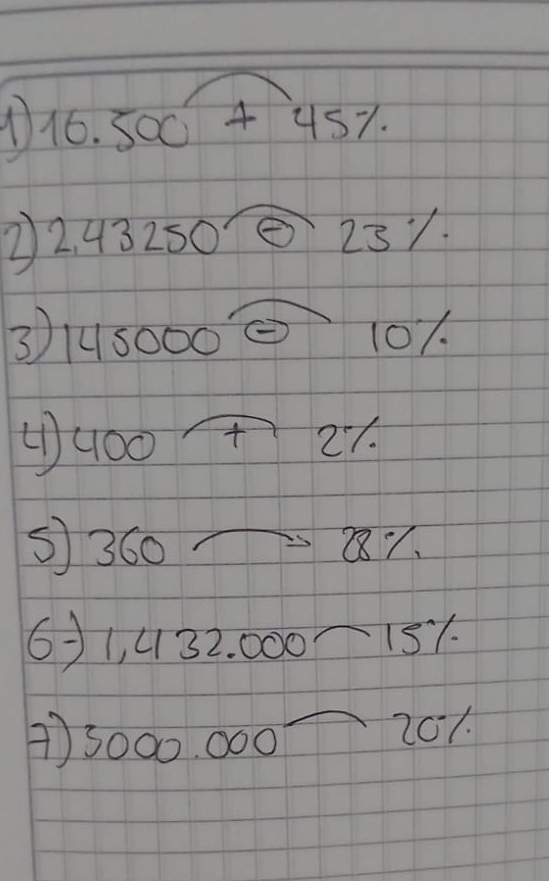 1) 16.500 + 45%.
2) 2,43250 - 23%.
3) 145000 - 10%
4) 400 + 2%.
5) 360 28%.
6-) 1,432.000 15%.
7) 5000.000 20%.